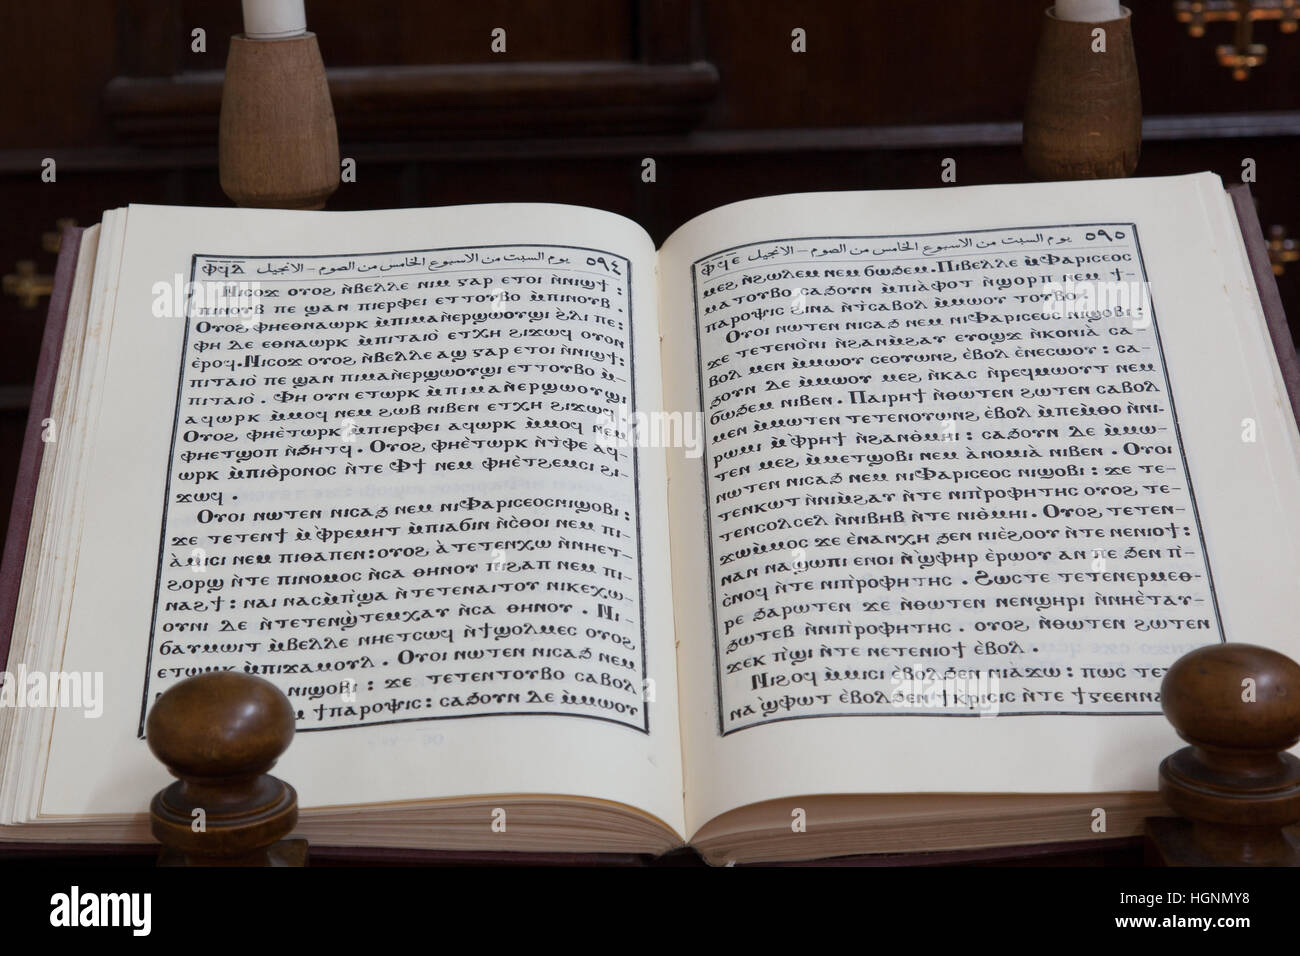 ⲫ̅ϥ̅ⲇ̅ يوم السبت من الاسبوع الخامس من الصوم – الانجيل ٥٩٤
Ⲛⲓⲥⲟϫ ⲟⲩⲟϩ ⲙ̀ⲃⲉⲗⲗⲉ ⲛⲓⲙ ⲅⲁⲣ ⲉⲧⲟⲓ ⲛ̀ⲛⲓϣϯ :
ⲡⲓⲛⲟⲩⲃ ⲡⲉ ϣⲁⲛ ⲡⲓⲉⲣⲫⲉⲓ ⲉⲧⲧⲟⲩⲃⲟ ⲙ̀ⲡⲓⲛⲟⲩⲃ .
Ⲟⲩⲟϩ ⲫⲏⲉⲑⲛⲁⲱⲣⲕ ⲙ̀ⲡⲓⲙⲁⲛ̀ⲉⲣϣⲱⲟⲩϣⲓ ϩ̀ⲗⲓ ⲡⲉ :
ⲫⲏ ⲇⲉ ⲉⲑⲛⲁⲱⲣⲕ ⲙ̀ⲡⲓⲧⲁⲓⲟ̀ ⲉⲧⲭⲏ ϩⲓϫⲱϥ ⲟⲩⲟⲛ
ⲉ̀ⲣⲟϥ . Ⲛⲓⲥⲟϫ ⲟⲩⲟϩ ⲙ̀ⲃⲉⲗⲗⲉ ⲁϣ ⲅⲁⲣ ⲉⲧⲟⲓ ⲛ̀ⲛⲓϣϯ :
ⲡⲓⲧⲁⲓⲟ̀ ⲡⲉ ϣⲁⲛ ⲡⲓⲙⲁⲛ̀ⲉⲣϣⲱⲟⲩϣⲓ ⲉⲧⲧⲟⲩⲃⲟ ⲙ̀-
ⲡⲓⲧⲁⲓⲟ̀ . Ⲫⲏ ⲟⲩⲛ ⲉⲧⲱⲣⲕ ⲙ̀ⲡⲓⲙⲁⲛ̀ⲉⲣϣⲱⲟⲩϣⲓ
ⲁϥⲱⲣⲕ ⲙ̀ⲙⲟϥ ⲛⲉⲙ ϩⲱⲃ ⲛⲓⲃⲉⲛ ⲉⲧⲭⲏ ϩⲓϫⲱϥ
Ⲟⲩⲟϩ ⲫⲏⲉ̀ⲧⲱⲣⲕ ⲙ̀ⲡⲓⲉⲣⲫⲉⲓ ⲁϥⲱⲣⲕ ⲙ̀ⲙⲟϥ ⲛⲉⲙ
ⲫⲏⲉⲧϣⲟⲡ ⲛ̀ϧⲏⲧϥ . Ⲟⲩⲟϩ ⲫⲏⲉ̀ⲧⲱⲣⲕ ⲛ̀ⲧ̀ⲫⲉ ⲁϥ-
ⲱⲣⲕ ⲙ̀ⲡⲓⲑ̀ⲣⲟⲛⲟⲥ ⲛ̀ⲧⲉ Ⲫϯ ⲛⲉⲙ ⲫⲏⲉ̀ⲧϩⲉⲙⲥⲓ ϩⲓ-
ϫⲱϥ .
Ⲟⲩⲟⲓ ⲛⲱⲧⲉⲛ ⲛⲓⲥⲁϧ ⲛⲉⲙ ⲛⲓⲪⲁⲣⲓⲥⲉⲟⲥ ⲛⲓϣⲟⲃⲓ :
ϫⲉ ⲧⲉⲧⲉⲛϯ ⲙ̀ⲫ̀ⲣⲉⲙⲏⲧ ⲙ̀ⲡⲓⲁⲃⲓⲛ ⲛ̀ⲥ̀ⲑⲟⲓ ⲛⲉⲙ ⲡⲓ-
ⲁ̀ⲙⲓⲥⲓ ⲛⲉⲙ ⲡⲓⲑⲁⲡⲉⲛ : ⲟⲩⲟϩ ⲁ̀ⲧⲉⲧⲉⲛⲭⲱ ⲛ̀ⲛⲏⲉⲧ-
ϩⲟⲣϣ ⲛ̀ⲧⲉ ⲡⲓⲛⲟⲙⲟⲥ ⲛ̀ⲥⲁ ⲑⲏⲛⲟⲩ ⲡⲓϩⲁⲡ ⲛⲉⲙ ⲡⲓ-
ⲛⲁϩϯ : ⲛⲁⲓ ⲛⲁⲥⲙ̀ⲡ̀ϣⲁ ⲛ̀ⲧⲉⲧⲉⲛⲁⲓⲧⲟⲩ ⲛⲓⲕⲉⲭⲱ-
ⲟⲩⲛⲓ ⲇⲉ ⲛ̀ⲧⲉⲧⲉⲛϣ̀ⲧⲉⲙⲭⲁⲩ ⲛ̀ⲥⲁ ⲑⲏⲛⲟⲩ . Ⲛⲓ-
ϭⲁⲩⲙⲱⲓⲧ ⲙ̀ⲃⲉⲗⲗⲉ ⲛⲏⲉⲧⲥⲱϥ ⲛ̀ϯϣⲟⲗⲙⲉⲥ ⲟⲩⲟϩ
ⲉⲧⲱⲙⲕ ⲙ̀ⲡⲓϫⲁⲙⲟⲩⲗ . Ⲟⲩⲟⲓ ⲛⲱⲧⲉⲛ ⲛⲓⲥⲁϧ ⲛⲉⲙ
ⲛⲓϣⲟⲃⲓ : ϫⲉ ⲧⲉⲧⲉⲛⲧⲟⲩⲃⲟ ⲥⲁⲃⲟⲗ
ⲙ ϯⲡⲁⲣⲟⲯⲓⲥ : ⲥⲁϧⲟⲩⲛ ⲇⲉ ⲙ̀ⲙⲱⲟⲩ
ⲫ̅ϥ̅ⲉ̅ يوم السبت من الاسبوع الخامس من الصوم – الانجيل ٥٩٥
ⲙⲉϩ ⲛ̀ϩⲱⲗⲉⲙ ⲛⲉⲙ ϭⲱϧⲉⲙ . Ⲡⲓⲃⲉⲗⲗⲉ ⲙ̀Ⲫⲁⲣⲓⲥⲉⲟⲥ
ⲙⲁⲧⲟⲩⲃⲟ ⲥⲁϧⲟⲩⲛ ⲙ̀ⲡⲓⲁ̀ⲫⲟⲧ ⲛ̀ϣⲟⲣⲡ ⲛⲉⲙ ϯ-
ⲡⲁⲣⲟⲯⲓⲥ ϩⲓⲛⲁ ⲛ̀ⲧⲥⲁⲃⲟⲗ ⲙ̀ⲙⲱⲟⲩ ⲧⲟⲩⲃⲟ .
Ⲟⲩⲟⲓ ⲛⲱⲧⲉⲛ ⲛⲓⲥⲁϧ ⲛⲉⲙ ⲛⲓⲪⲁⲣⲓⲥⲉⲟⲥ ⲛⲓϣⲟⲃⲓ :
ϫⲉ ⲧⲉⲧⲉⲛⲟ̀ⲛⲓ ⲛ̀ϩⲁⲛⲙ̀ϩⲁⲩ ⲉⲩⲟϣϫ ⲛ̀ⲕⲟⲛⲓⲁ̀ ⲥⲁ-
ⲃⲟⲗ ⲙⲉⲛ ⲙ̀ⲙⲱⲟⲩ ⲥⲉⲟⲩⲱⲛϩ ⲉ̀ⲃⲟⲗ ⲉⲛⲉⲥⲱⲟⲩ : ⲥⲁ-
ϧⲟⲩⲛ ⲇⲉ ⲙ̀ⲙⲱⲟⲩ ⲙⲉϩ ⲛ̀ⲕⲁⲥ ⲛ̀ⲣⲉϥⲙⲱⲟⲩⲧ ⲛⲉⲙ
ϭⲱϧⲉⲙ ⲛⲓⲃⲉⲛ . Ⲡⲁⲓⲣⲏϯ ⲛ̀ⲑⲱⲧⲉⲛ ϩⲱⲧⲉⲛ ⲥⲁⲃⲟⲗ
ⲙⲉⲛ ⲙ̀ⲙⲱⲧⲉⲛ ⲧⲉⲧⲉⲛⲟⲩⲱⲛϩ ⲉ̀ⲃⲟⲗ ⲙ̀ⲡⲉⲙ̀ⲑⲟ ⲛ̀ⲛⲓ-
ⲣⲱⲙⲓ ⲙ̀ⲫ̀ⲣⲏϯ ⲛ̀ϩⲁⲛⲑ̀ⲙⲏⲓ : ⲥⲁϧⲟⲩⲛ ⲇⲉ ⲙ̀ⲙⲱ-
ⲧⲉⲛ ⲙⲉϩ ⲙ̀ⲙⲉⲧϣⲟⲃⲓ ⲛⲉⲙ ⲁ̀ⲛⲟⲙⲓⲁ̀ ⲛⲓⲃⲉⲛ . Ⲟⲩⲟⲓ
ⲛⲱⲧⲉⲛ ⲛⲓⲥⲁϧ ⲛⲉⲙ ⲛⲓⲪⲁⲣⲓⲥⲉⲟⲥ ⲛⲓϣⲟⲃⲓ : ϫⲉ ⲧⲉ-
ⲧⲉⲛⲕⲱⲧ ⲛ̀ⲛⲓⲙ̀ϩⲁⲩ ⲛ̀ⲧⲉ ⲛⲓⲡ̀ⲣⲟⲫⲏⲧⲏⲥ ⲟⲩⲟϩ ⲧⲉ-
ⲧⲉⲛⲥⲟⲗⲥⲉⲗ ⲛ̀ⲛⲓⲃⲏⲃ ⲛ̀ⲧⲉ ⲛⲓⲑ̀ⲙⲏⲓ . Ⲟⲩⲟϩ ⲧⲉⲧⲉⲛ-
ϫⲱⲙ̀ⲙⲟⲥ ϫⲉ ⲉ̀ⲛⲁⲛⲭⲏ ϧⲉⲛ ⲛⲓⲉ̀ϩⲟⲟⲩ ⲛ̀ⲧⲉ ⲛⲉⲛⲓⲟϯ :
ⲛⲁⲛ ⲛⲁϣⲱⲡⲓ ⲉⲛⲟⲓ ⲛ̀ϣ̀ⲫⲏⲣ ⲉⲣⲱⲟⲩ ⲁⲛ ⲡⲉ ϧⲉⲛ ⲡⲓ̀-
ⲥ̀ⲛⲟϥ ⲛ̀ⲧⲉ ⲛⲓⲡ̀ⲣⲟⲫⲏⲧⲏⲥ . Ϩⲱⲥⲧⲉ ⲧⲉⲧⲉⲛⲉⲣⲙⲉⲑ-
ⲣⲉ ϧⲁⲣⲱⲧⲉⲛ ϫⲉ ⲛ̀ⲑⲱⲧⲉⲛ ⲛⲉⲛϣⲏⲣⲓ ⲛ̀ⲛⲏⲉ̀ⲧⲁⲩ-
ϧⲱⲧⲉⲃ ⲛ̀ⲛⲓⲡ̀ⲣⲟⲫⲏⲧⲏⲥ . ⲟⲩⲟϩ ⲛ̀ⲑⲱⲧⲉⲛ ϩⲱⲧⲉⲛ
ϫⲉⲕ ⲡ̀ϣⲓ ⲛ̀ⲧⲉ ⲛⲉⲧⲉⲛⲓⲟϯ ⲉ̀ⲃⲟⲗ .
Ⲛⲓϩⲟϥ ⲙ̀ⲙⲓⲥⲓ ⲉ̀ⲃⲟⲗϧⲉⲛ ⲛⲓⲁ̀ϫⲱ : ⲡⲱⲥ ⲧⲉⲧ
ⲛⲁϣ̀ⲫⲱⲧ ⲉ̀ⲃⲟⲗϧⲉⲛ ϯⲕ̀ⲣⲓⲥⲓⲥ ⲛ̀ⲧⲉ ϯⲅⲉⲉⲛⲛⲁ
alamy stock photo
HGNNY8
www.alamy.com